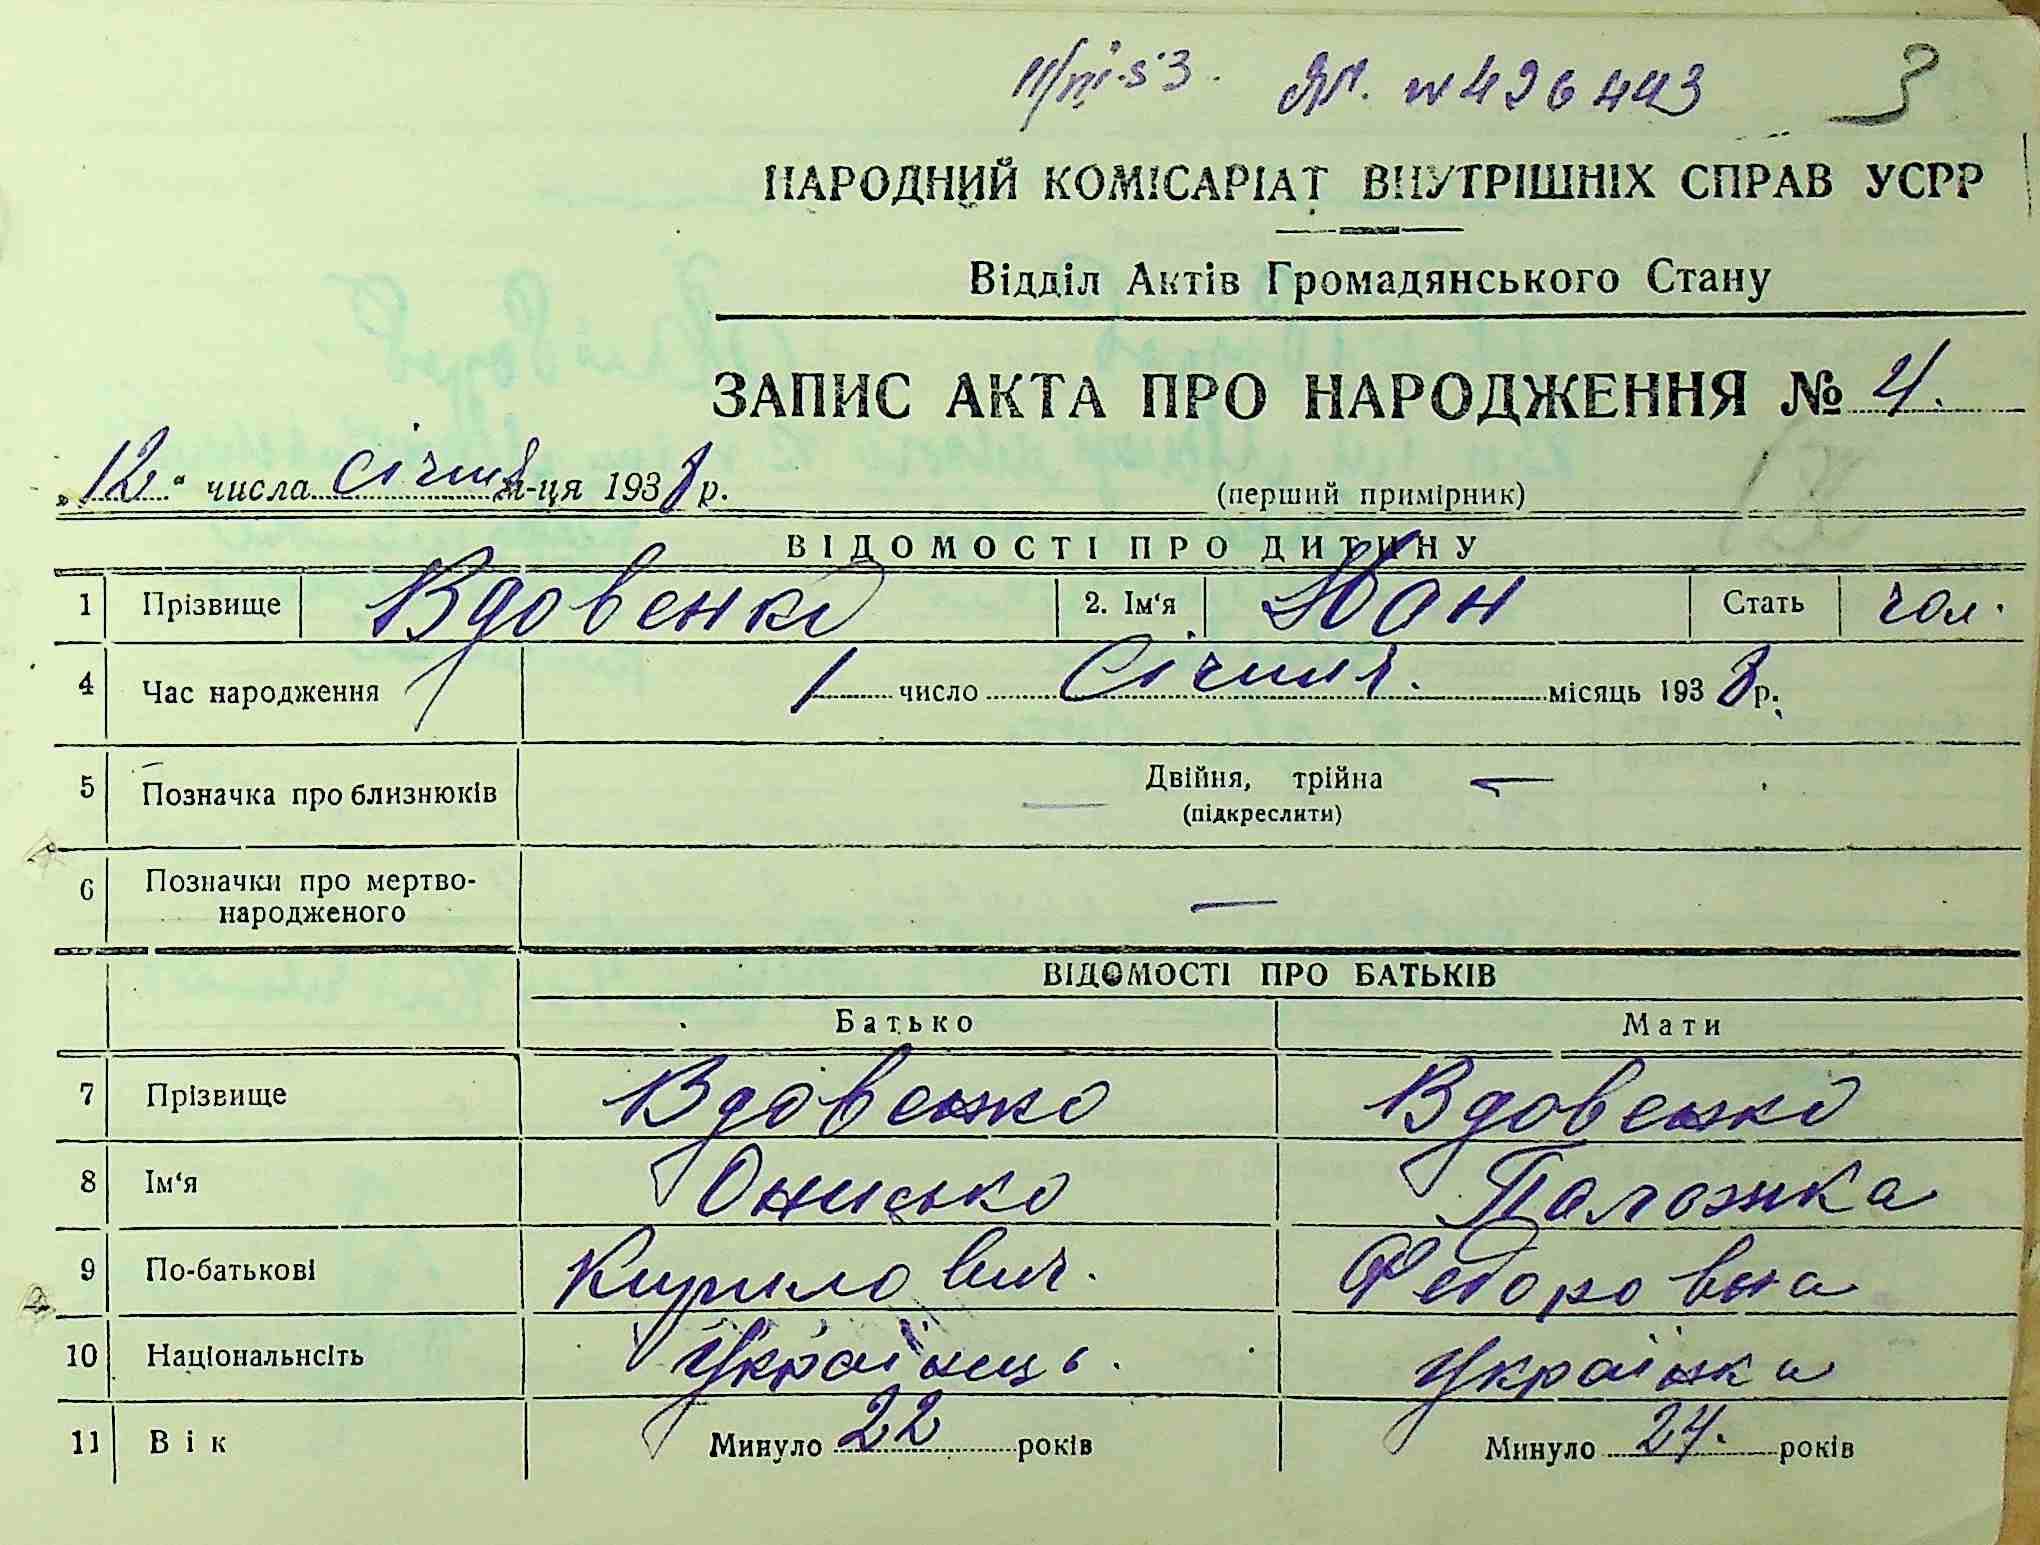 11/III-53. ЯП. № 426443 3
НАРОДНИЙ КОМІСАРІАТ ВНУТРІШНІХ СПРАВ УСРР
Відділ Актів Громадянського Стану
ЗАПИС АКТА ПРО НАРОДЖЕННЯ № 4.
„12“ числа січня м-ця 1938 р. (перший примірник)
ВІДОМОСТІ ПРО ДИТИНУ
1 Прізвище Вдовенко 2. Ім‘я Іван Стать чол.
4 Час народження 1 число Січня місяць 1938 р.
5 Позначка про близнюків — Двійня, трійна —
(підкреслити)
6 Позначки про мертво-
народженого —
ВІДОМОСТІ ПРО БАТЬКІВ
Батько Мати
7 Прізвище Вдовенко Вдовенко
8 Ім‘я Онисько Палажка
9 По-батькові Кирилович. Федоровна
10 Національнсіть Українець. Українка
11 Вік Минуло 22 років Минуло 24. років